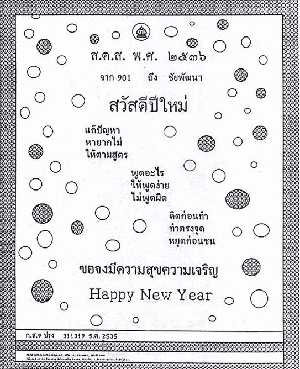 ส.ค.ส. พ.ศ. ๒๕๓๖
จาก 901 ถึง ชัยพัฒนา
สวัสดีปีใหม่
แก้ปัญหา
หายากไม่
ให้ตามสูตร
พูดอะไร
ให้พูดง่าย
ไม่พูดผิด
คิดก่อนทำ
ทำตรงจุด
หยุดก่อนชน
ขอจงมีความสุขความเจริญ
Happy New Year